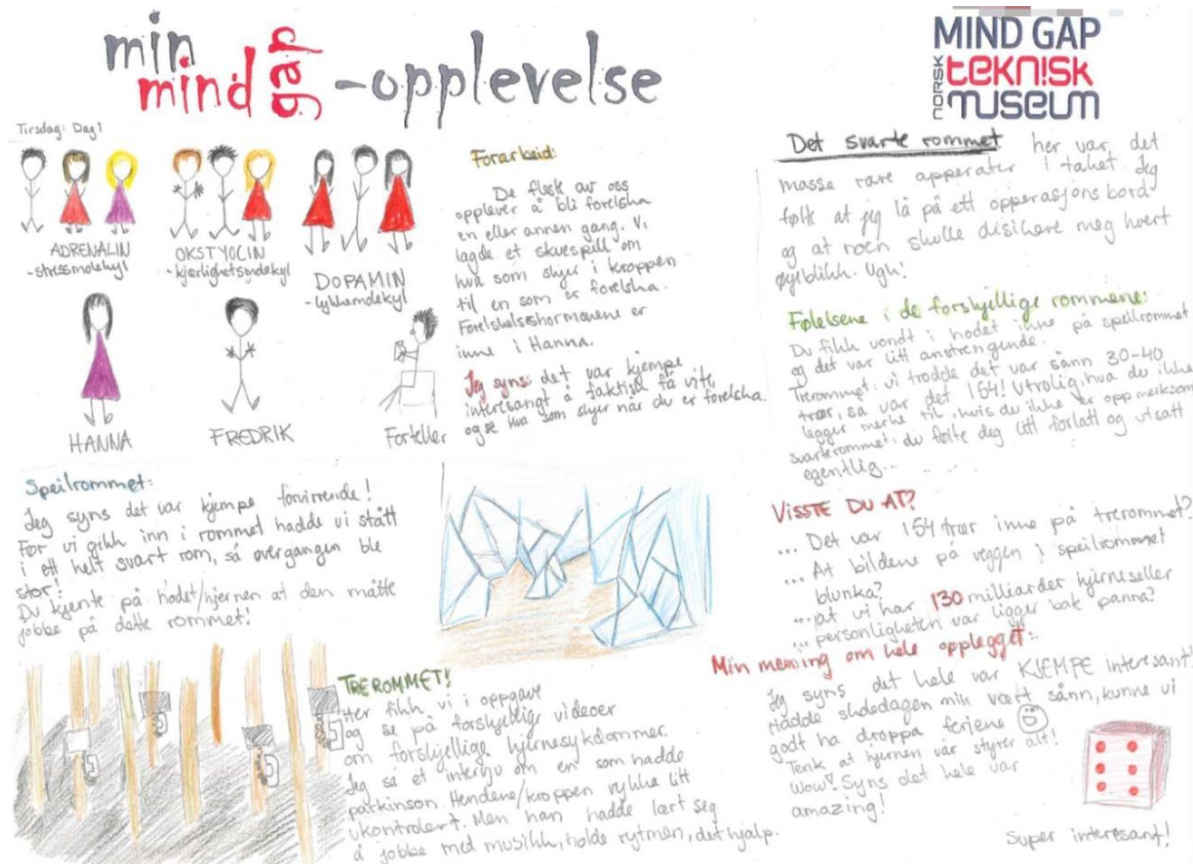 min
mind gap -opplevelse
MIND GAP
NORSK
teknisk
museum
Tirsdag: Dag 1
ADRENALIN
-stressmolekyl
OKSTYOCIN
-kjærlighetsmolekyl
DOPAMIN
-lykkemolekyl
HANNA
FREDRIK
Forteller
Forarbeid:
De flest av oss
opplever å bli forelska
en eller annen gang. Vi
lagde et skuespill om
hva som skjer i kroppen
til en som er forelska.
Forelskelseshormonene er
inne i Hanna.
Jeg syns: det var kjempe
interesangt å faktisk få vite,
og se hva som skjer når du er forelska.
Det svarte rommet her var det
masse rare apperater i taket. Jeg
følt at jeg lå på ett opperasjons bord
og at noen skulle disikere meg hvert
øyeblikk. Ugh!
Følelsene i de forskjellige rommene:
Du fikk vondt i hodet inne på speilrommet
og det var litt anstrengende.
Trerommet: vi trodde det var sånn 30-40
trær, så var det 154! Utrolig hva du ikke
legger merke til, hvis du ikke er oppmerksom
svarterommet: du følte deg litt forlatt og utsatt
egentlig...
Speilrommet:
Jeg syns det var kjempe forvirrende!
Før vi gikk inn i rommet hadde vi stått
i ett helt svart rom, så overgangen ble
stor!
Du kjente på hodet/hjernen at den måtte
jobbe på dette rommet!
TREROMMET!
Her fikk vi i oppgave
og se på forskjellige videoer
om forskjellige hjernesykdommer.
Jeg så et intervju om en som hadde
parkinson. Hendene/kroppen rykka litt
ukontrolert. Men han hadde lært seg
å jobbe med musikk, holde rytmen, det hjalp.
VISSTE DU AT?
... Det var 154 trær inne på trerommet?
... At bildene på veggen i speilrommet
blunka?
... at vi har 130 milliarder hjerneseller
... personligheten vår ligger bak panna?
Min mening om hele opplegget:
Jeg syns det hele var KJEMPE interesant!
Hadde skoledagen min vært sånn, kunne vi
godt ha droppa feriene
Tenk at hjernen vår styrer alt!
Wow! Syns det hele var
amazing!
Super interesant!